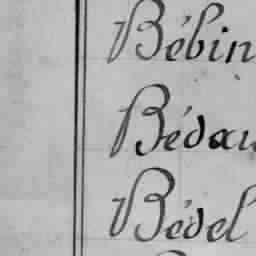 Bébin
Bédau
Bédel